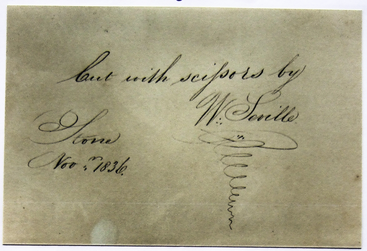 Cut with scissors by
W. Seville
Stone
Nov. 1836.